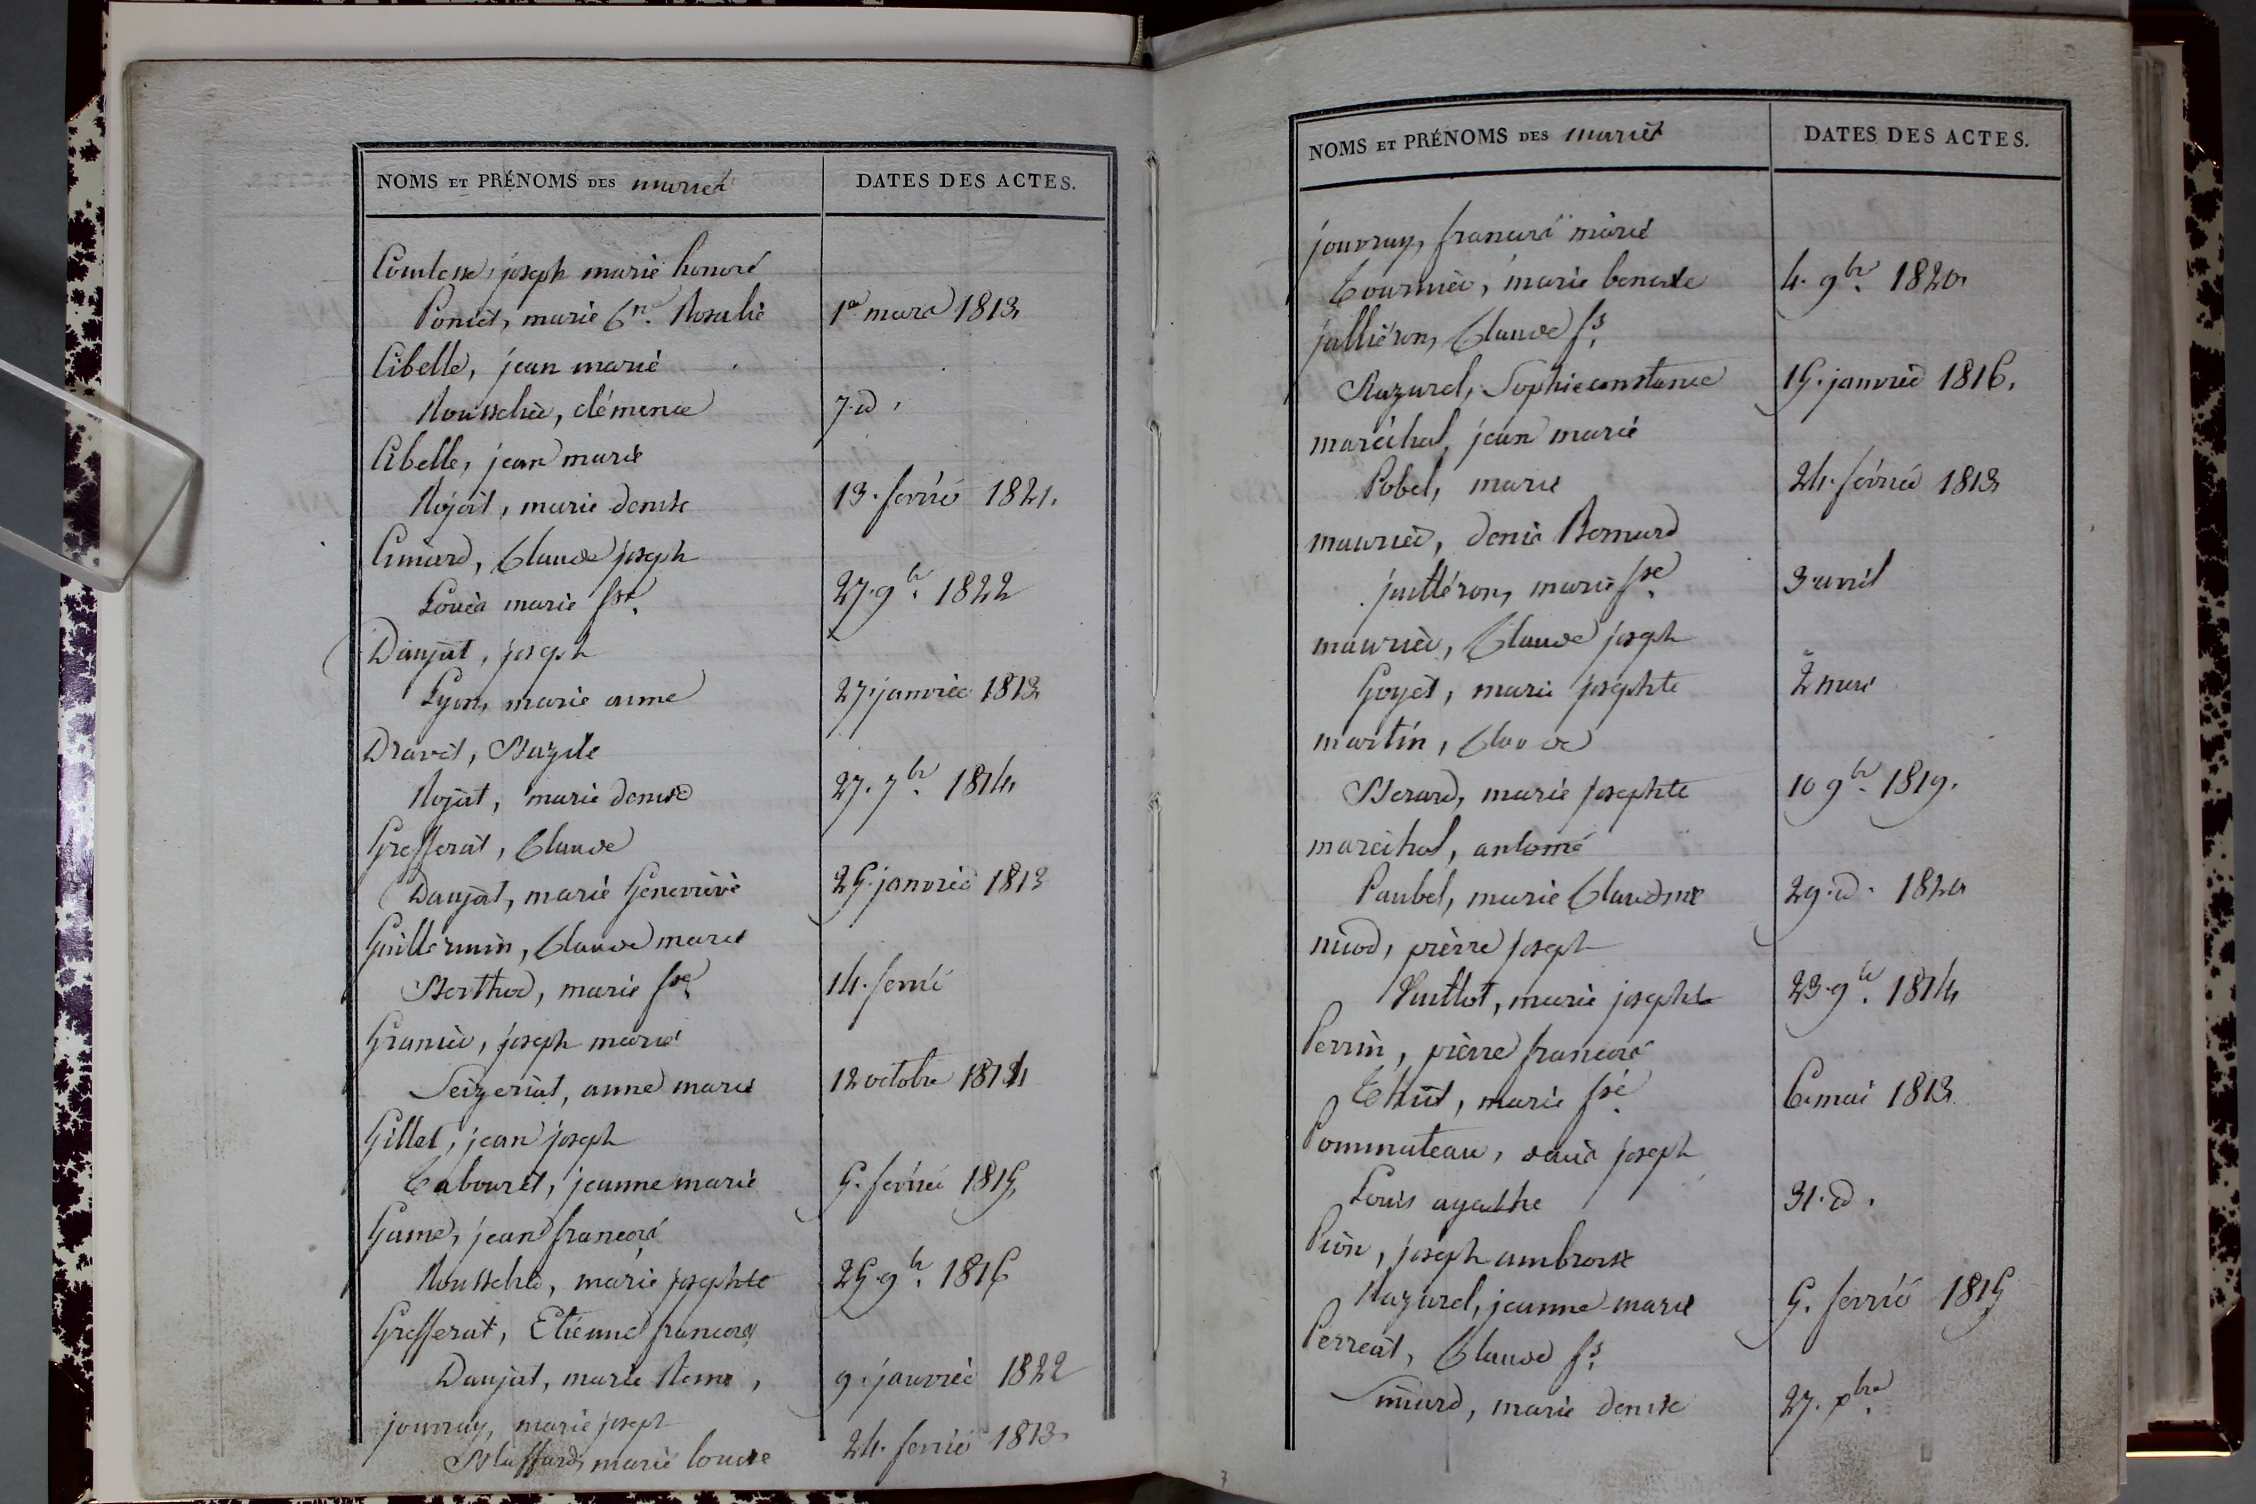 NOMS ET PRÉNOMS DES mariés DATES DES ACTES.
Comtesse, joseph marie honoré
Poncet, marie Cne. Rosalie 1er mars 1813
Cibelle, jean marie
Rousselier, clémence 7. d.
Cibelle, jean marie
Rojat, marie denise 13. fevrier 1821.
Cimard, Claude joseph
Louis marie fse. 27. 9bre. 1822
Daujat, joseph
Lyon, marie anne 27. janvier 1813
Dravet, Bazile
Rojat, marie denise 27. 7bre. 1814
Grefferat, Claude
Daujat, marie Genevieve 25. janvier 1813
Guillermin, Claude marie
Berthod, marie fse. 14. fevrié
Granier, joseph marie
Seizeriat, anne marie 12 octobre 1814
Gillet, jean joseph
Tabouret, jeanne marie 5. février 1815
Game, jean francois
Rousselier, marie josephte 25. 9bre. 1816
Grefferat, Etienne francois
Daujat, marie 9. janvier 1822
jouvray, marie joseph
marie louise 24. fevrié 1813
NOMS ET PRÉNOMS DES mariés DATES DES ACTES.
jouvray, francois marie
Tournier, marie benoite 4. 9bre. 1820
julliéron, Claude fs.
Razurel, Sophie constance 15. janvier 1816.
maréchal, jean marie
Pobel, marie 24. février 1813
maurier, denis Bernard
julliéron, marie fse. 3 avril
maurier, Claude joseph
Goyet, marie josephte 2 mai
martin, Claude
Berard, marie josephte 10 9bre. 1819.
maréchal, antoine
Paubel, marie Claudine 29. d. 1820
niod, pierre joseph
Vuillot, marie josephte 23. 9bre. 1814
Perrin, pierre francois
marie fse. 6. mai 1813
Pommateau, denis joseph
Louis agathe 31. d.
Pion, joseph ambroise
Razurel, jeanne-marie 5. fevrié 1815
Perreat, Claude fs.
Simard, marie denise 27. xbre.
3